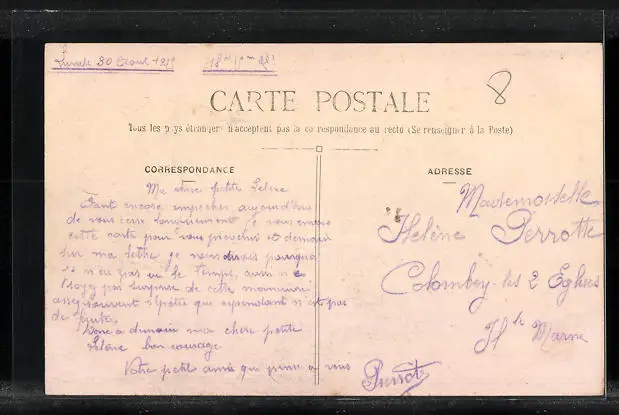 Lundi 30 Août
8
CARTE POSTALE
Tous les pays étrangers n'acceptent pas la correspondance au recto (Se renseigner à la Poste)
CORRESPONDANCE
Ma chère petite Hélène
Etant encore empêcher aujourd'hui
de vous je vous envoie
cette carte pour vous prévenir et demain
sur ma lettre je vous dirais pourquoi
je n'ai pas eu le temps, aussi ne
soyez pas surprise de cette
assez souvent cependant n'est pas
de
Donc a demain ma chère petite
Hélène bon courage
Votre petit ami qui pense a vous
Pierrot
ADRESSE
Mademoiselle
Hélène Perrotte
Colombey-les 2 Eglises
Hte Marne